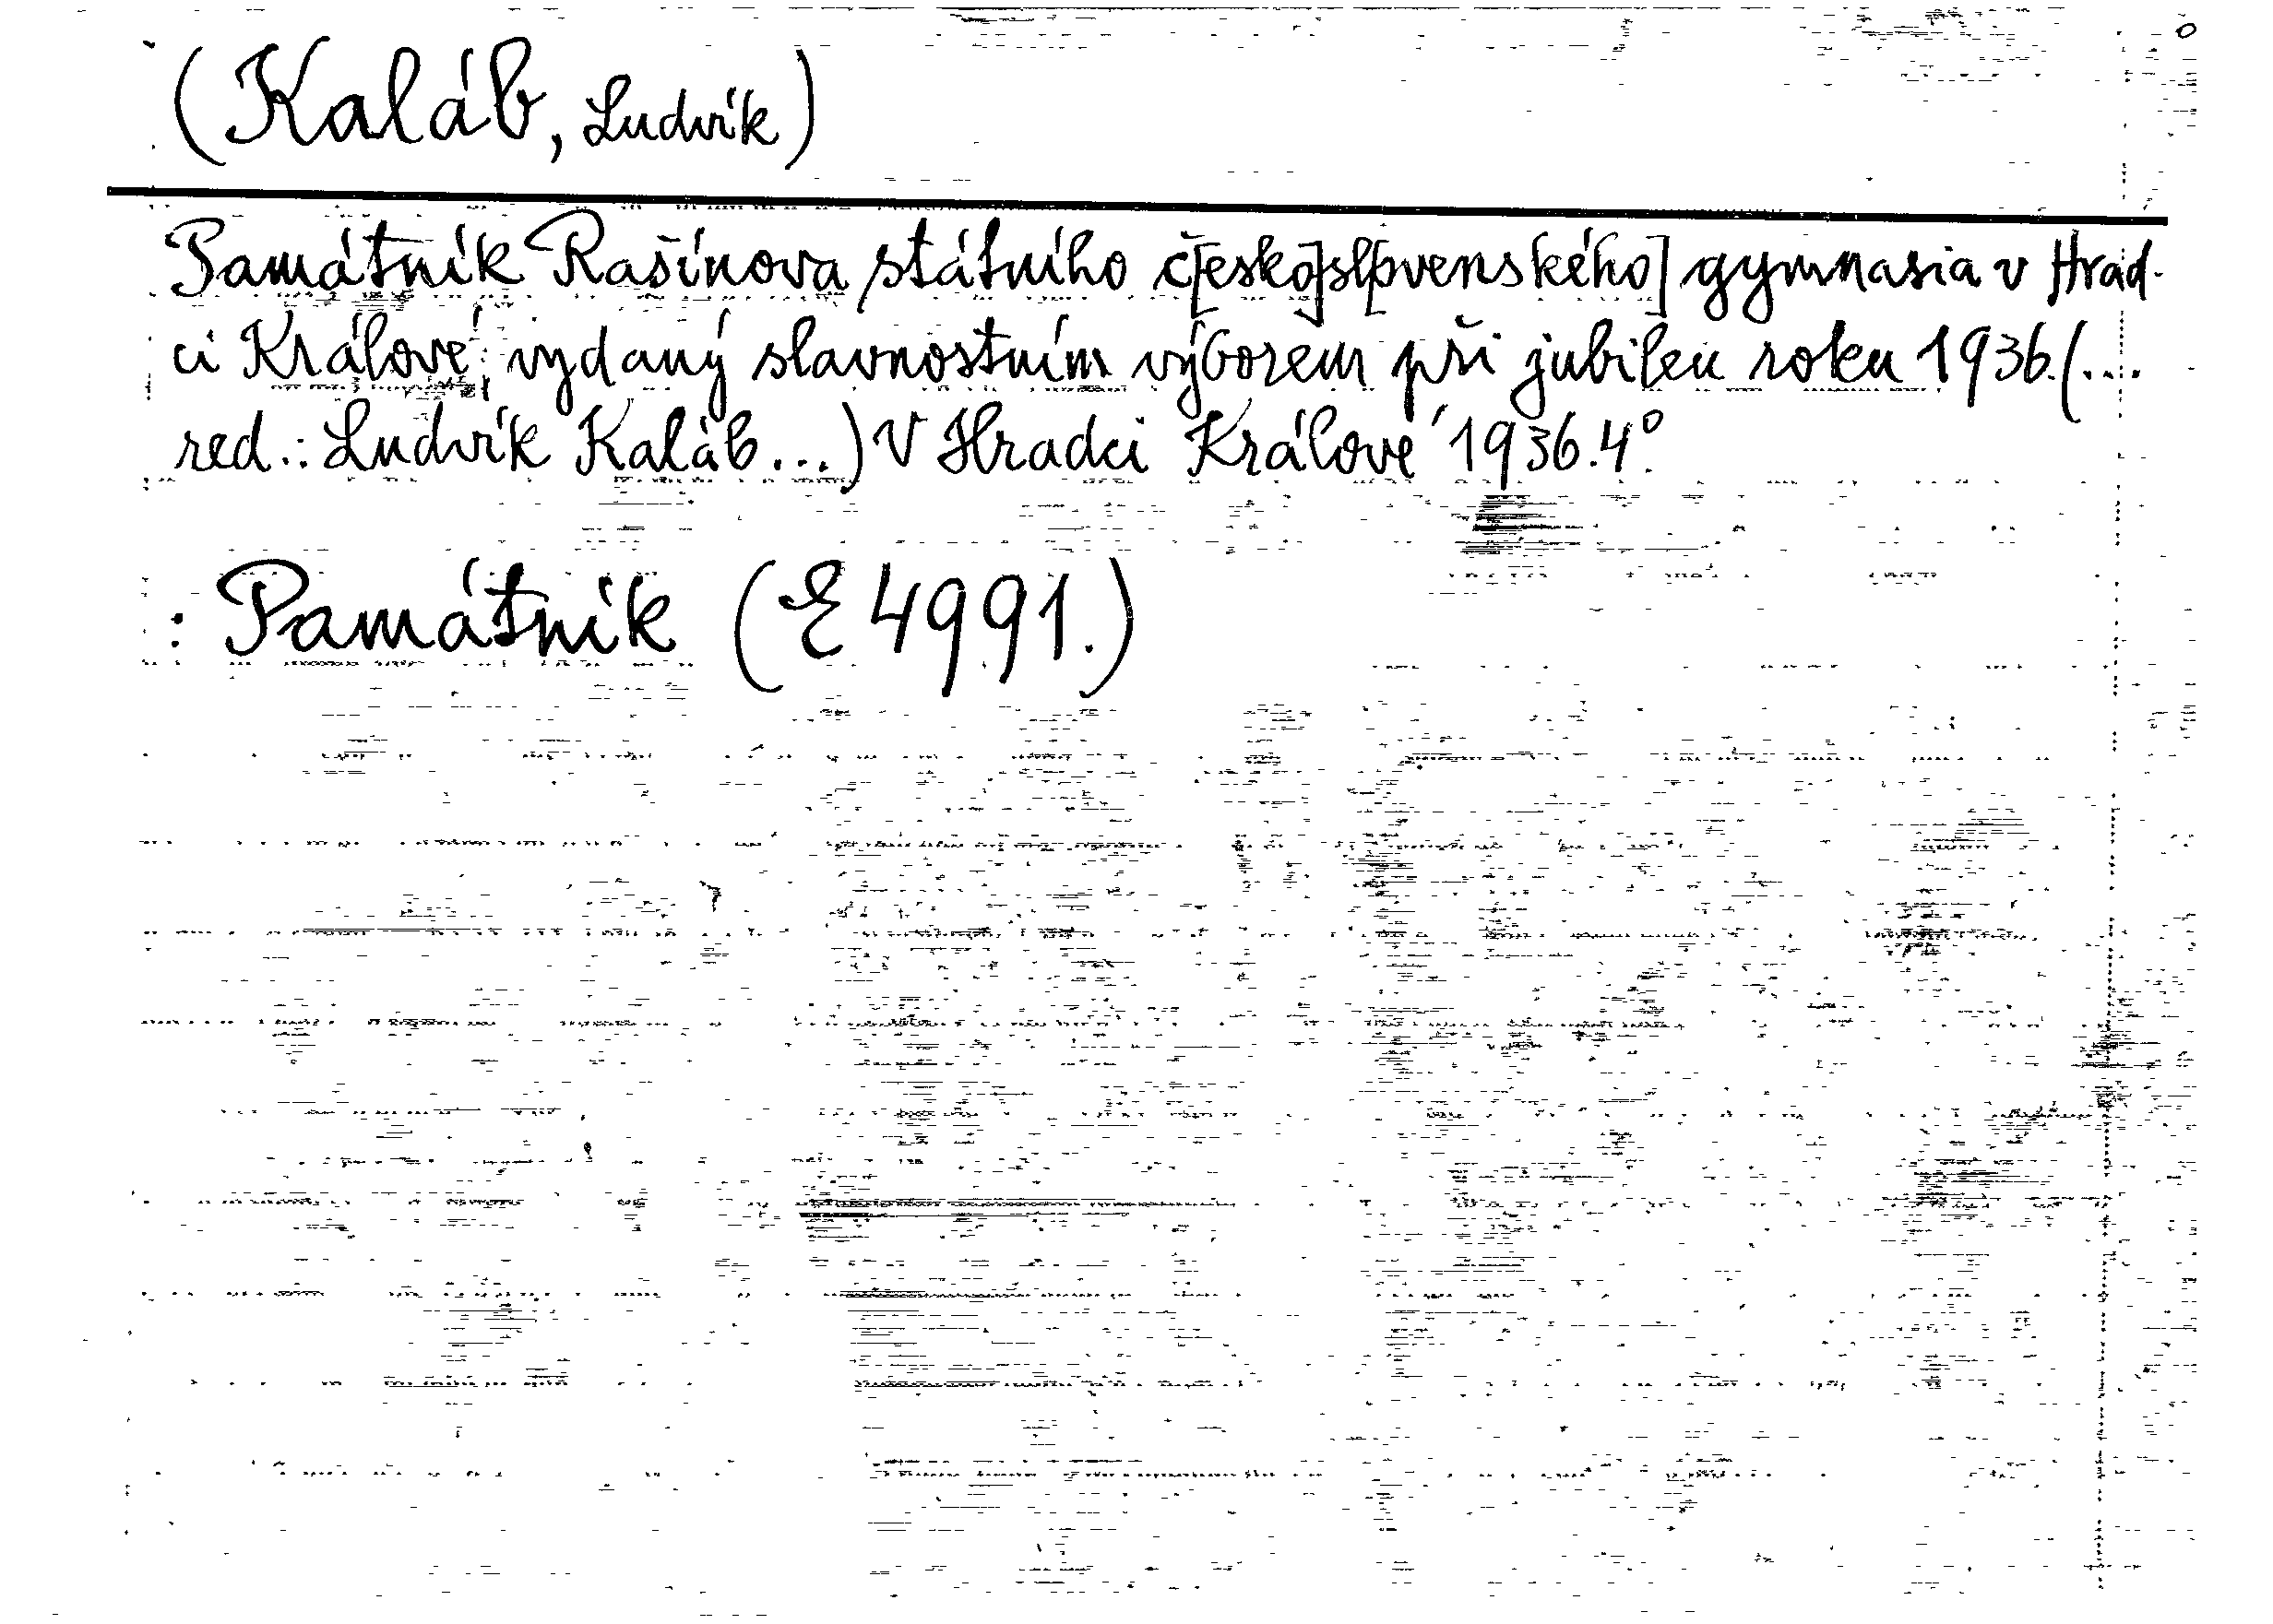 (Kaláb, Ludvík)
Památník Rašínova státního č[esko]sl[ovenského] gymnasia v Hrad-
ci Králové, vydaný slavnostním výborem při jubileu roku 1936. (...
red.: Ludvík Kaláb...) V Hradci Králové 1936. 4°.
: Památník (E 4991.)